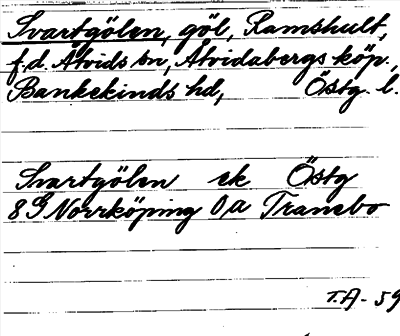 Svartgölen, göl, Ramshult,
f.d. Åtvids sn, Åtvidabergs köp.,
Bankekinds hd, Östg. l.
Svartgölen ek Östg
8G Norrköping 0,a Tranebo
T.A - 59